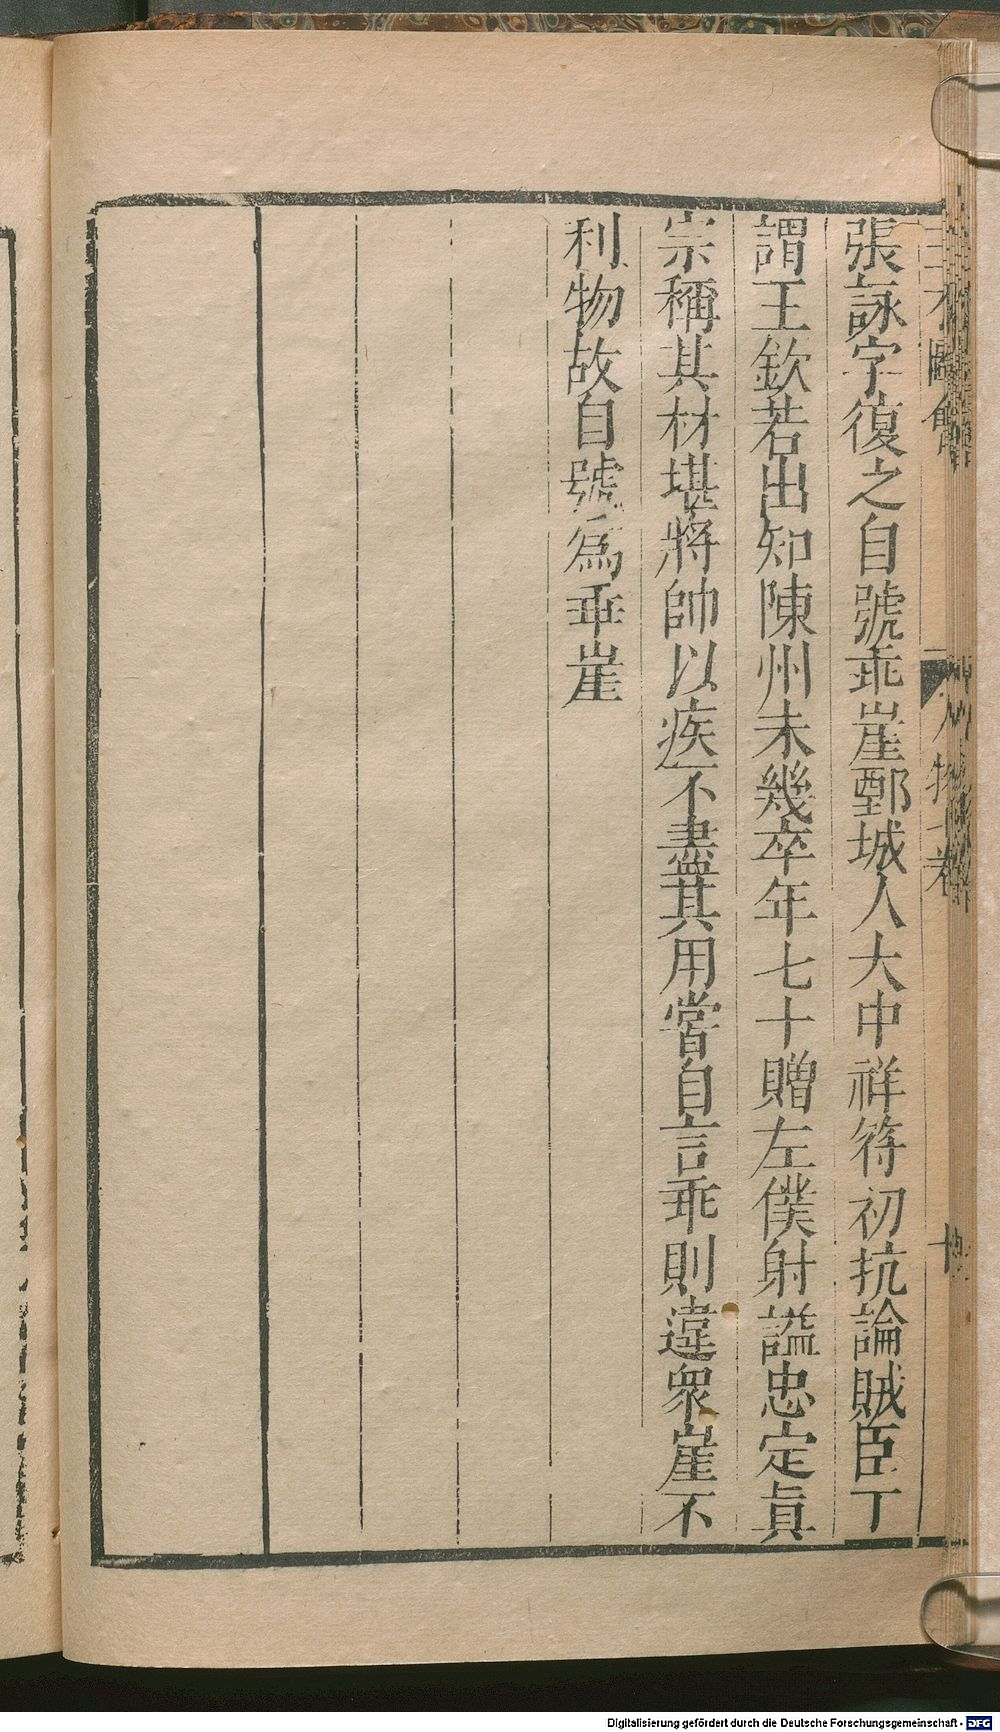 三才圖會
人物 卷
張詠字復之自號乖崖鄄城人大中祥符初抗論賊臣丁
謂王欽若出知陳州未幾卒年七十贈左僕射謚忠定真
宗稱其材堪將帥以疾不盡其用嘗自言乖則違衆崖不
利物故自號爲乖崖
Digitalisierung gefördert durch die Deutsche Forschungsgemeinschaft - DFG